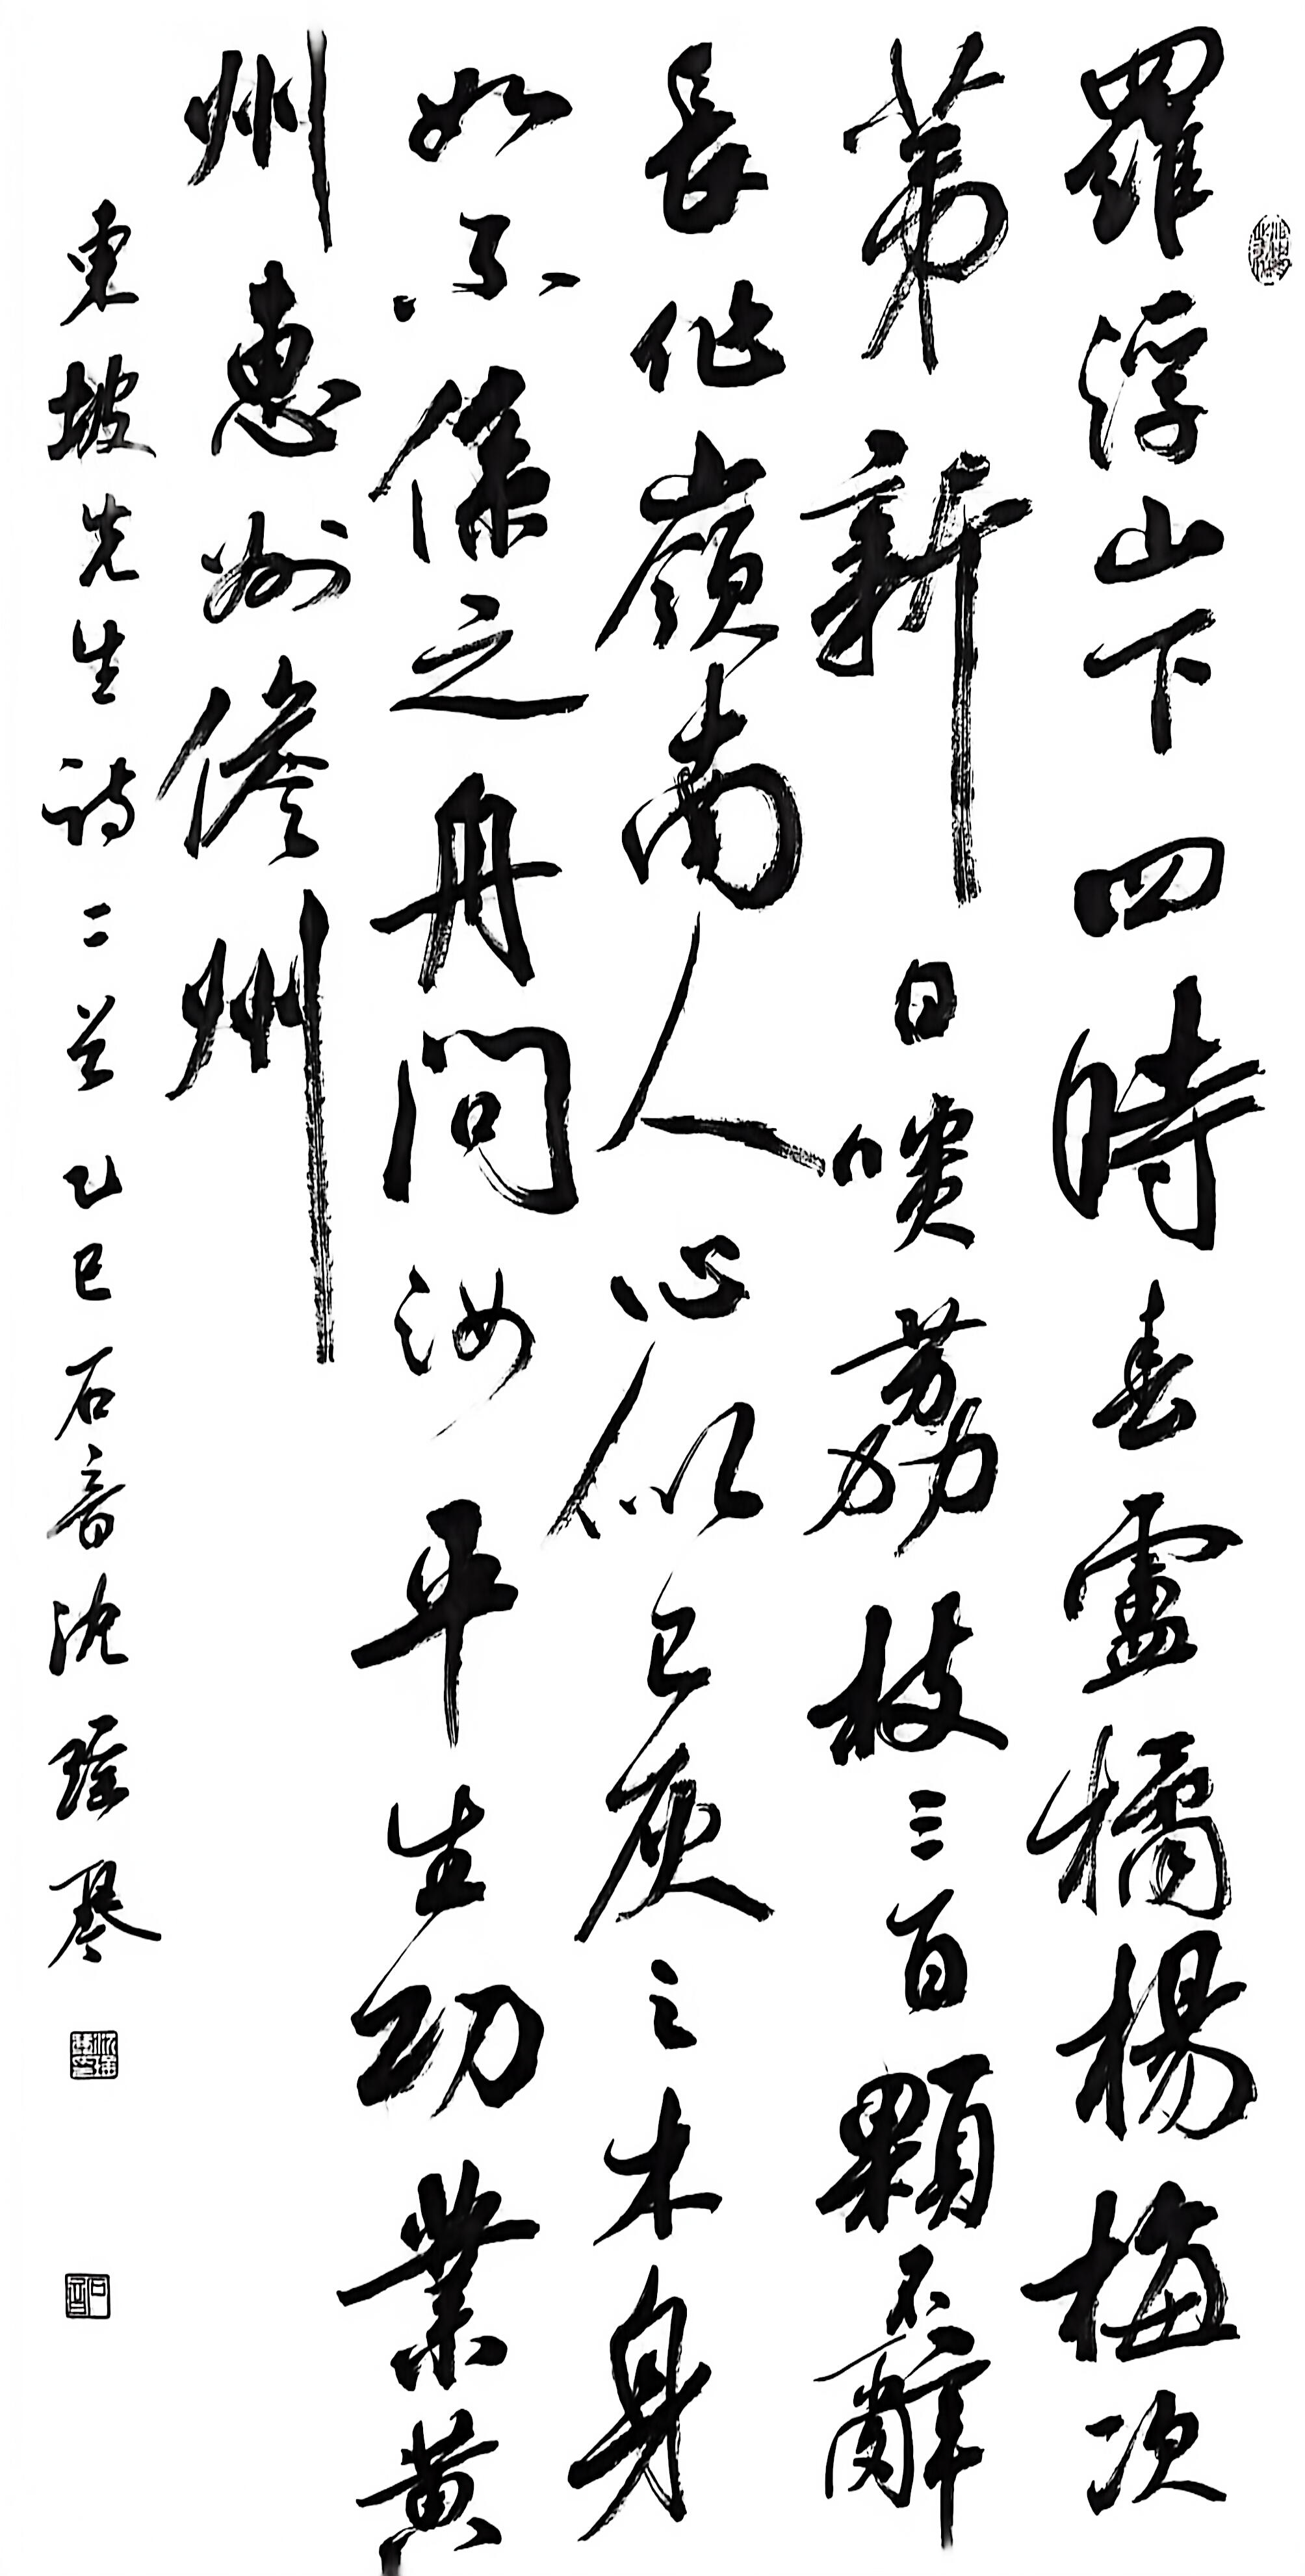 羅浮山下四時春盧橘楊梅次
第新日啖荔枝三百顆不辭
長作嶺南人心似已灰之木身
如不係之舟問汝平生功業黄
州惠州儋州
東坡先生詩二首乙巳石音沈琴
石音